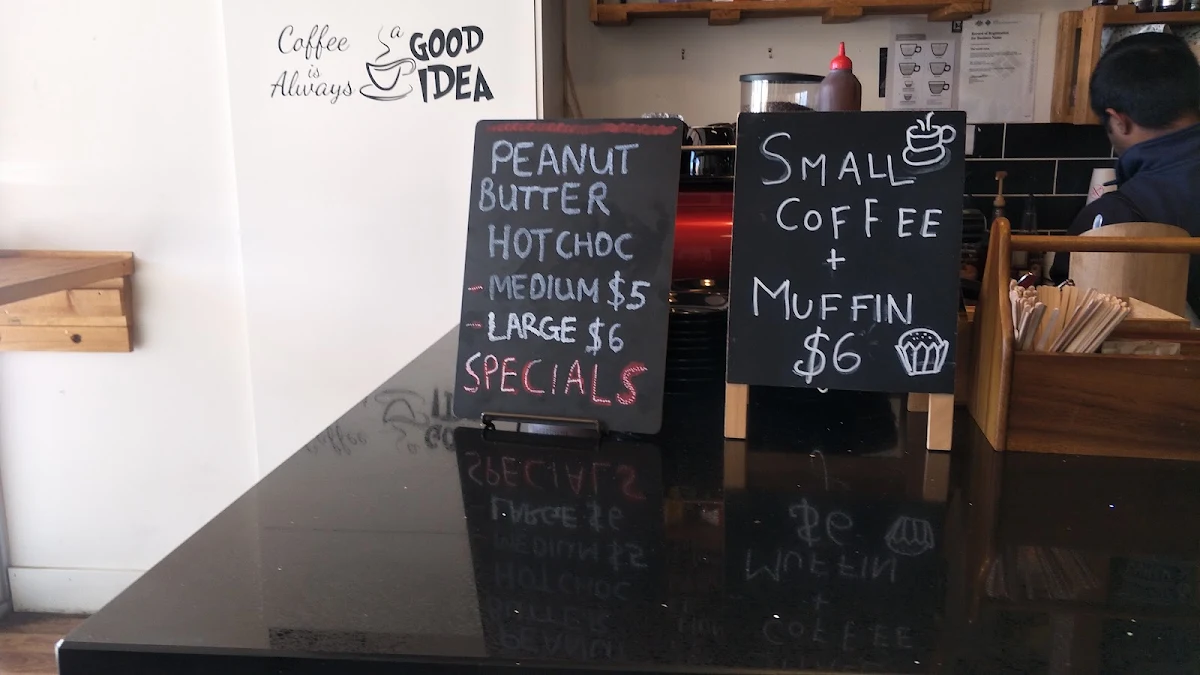 Coffee
is
Always
a
GOOD
IDEA
PEANUT
BUTTER
HOT CHOC
- MEDIUM $5
- LARGE $6
SPECIALS
SMALL
COFFEE
+
MUFFIN
$6